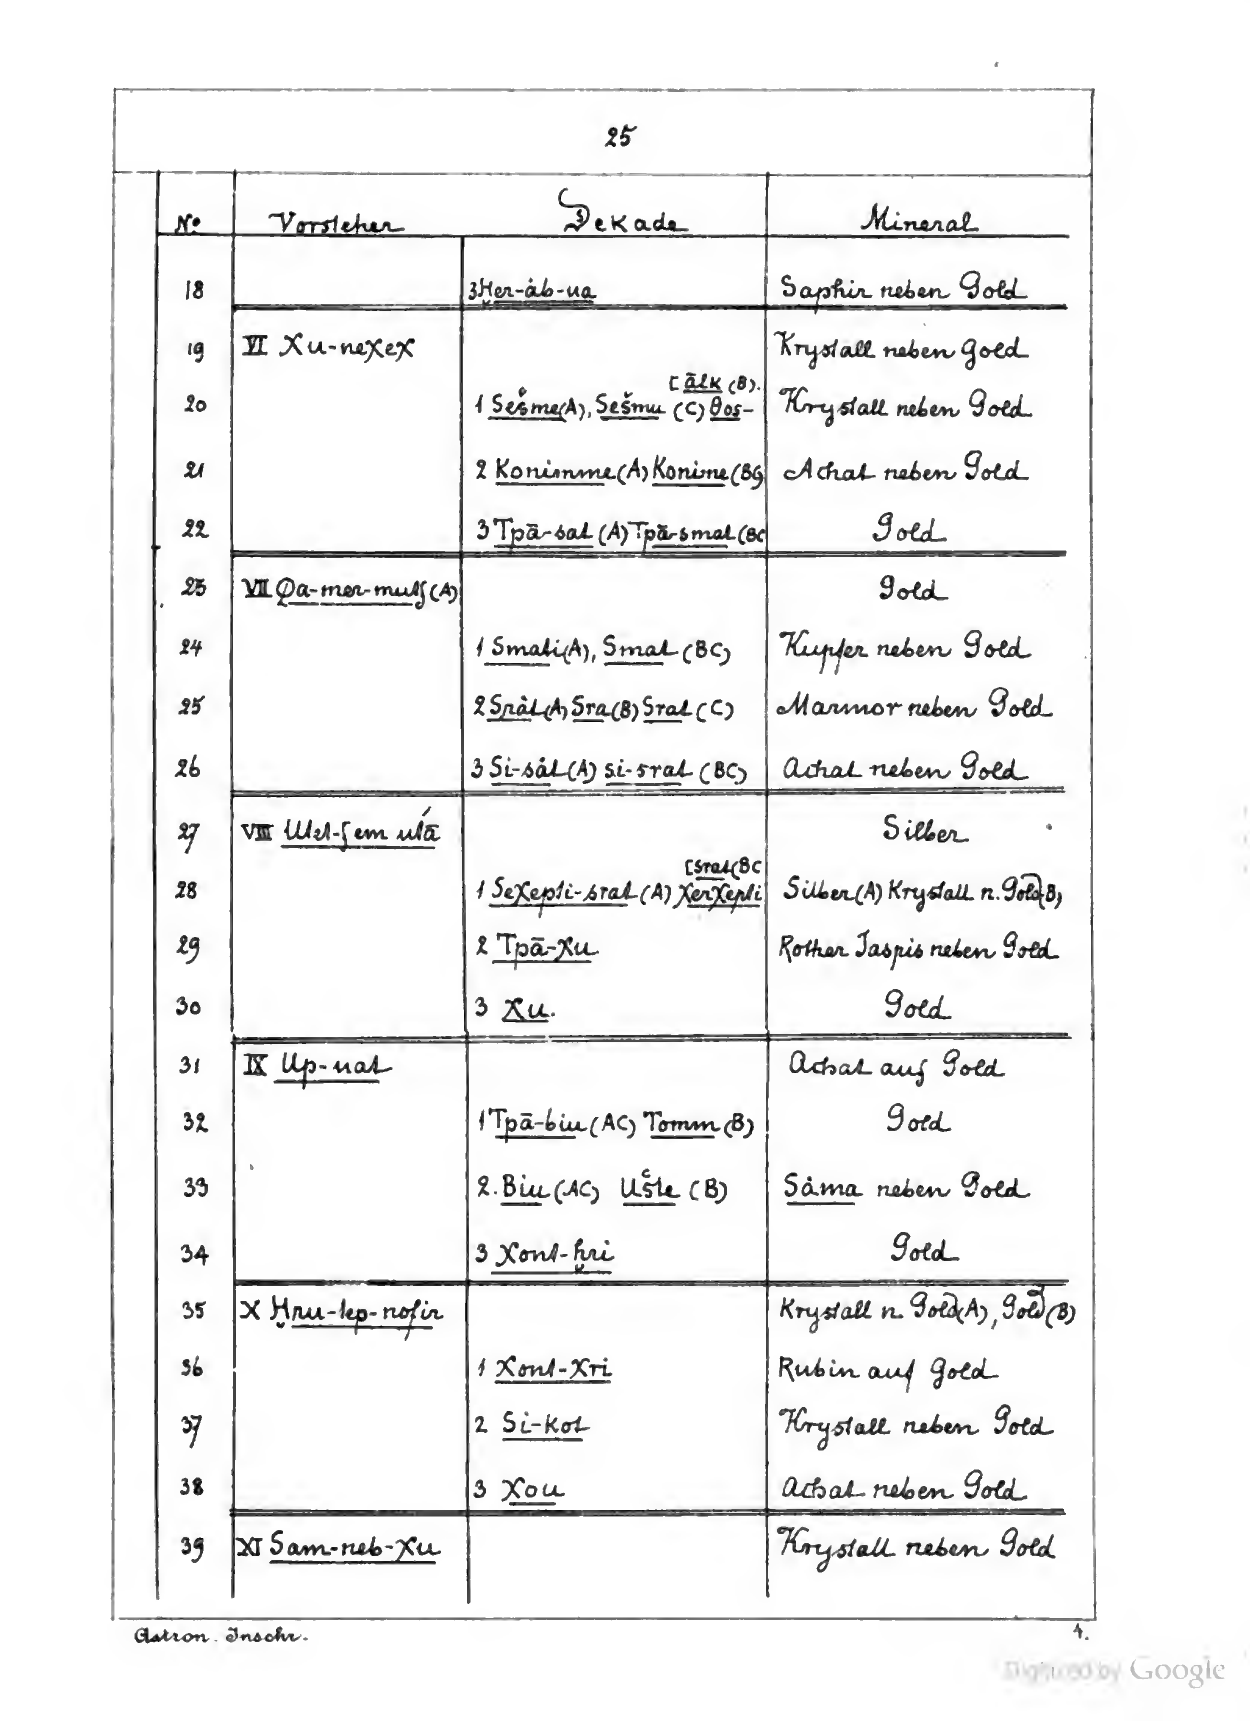 25
No Vorsteher Dekade Mineral
18 3 Ḥer-åb-ua Saphir neben Gold
19 VI Xu-neXeX Krystall neben Gold
[ālk (B).
20 1 Sešme(A), Sešmu (C) θos- Krystall neben Gold
21 2 Konimme(A) Konime(BC) Achat neben Gold
22 3 Tpā-sat (A) Tpā-smat (BC Gold
23 VII Qa-mer-mutf (A) Gold
24 1 Smati(A), Smat (BC) Kupfer neben Gold
25 2 Sråt(A) Sra(B) Srat (C) Marmor neben Gold
26 3 Si-såt(A) si-srat (BC) Achat neben Gold
27 VIII Silber
[srat(BC
28 1 SeXepti-srat (A) XerXepti Silber(A) Krystall n. Gold(B)
29 2 Tpā-Xu Rother Jaspis neben Gold
30 3 Xu. Gold
31 IX Up-uat Achat auf Gold
32 1 Tpā-biu (AC) Tomm (B) Gold
33 2. Biu (AC) Ušte (B) Såma neben Gold
34 3 Xont-ḥri Gold
35 X Ḥru-tep-nofir Krystall n. Gold(A), Gold (B)
36 1 Xont-Xri Rubin auf Gold
37 2 Si-Kot Krystall neben Gold
38 3 Xou Achat neben Gold
39 XI Sam-neb-Xu Krystall neben Gold
Astron. Inschr. 4.
Digitized by Google